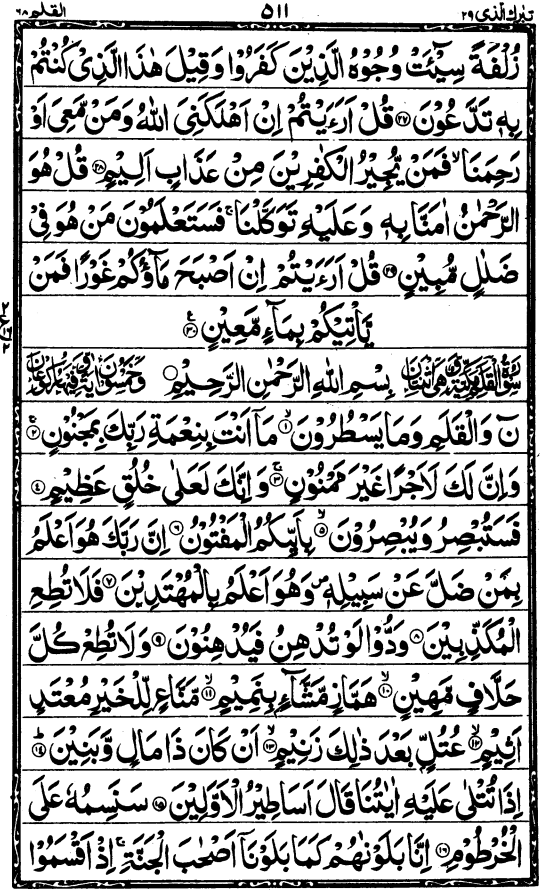 تبٰرك الذی ۲۹ ۵۱۱ القلم ۶۸
زُلۡفَةً سِیۡٓـَٔتۡ وُجُوۡهُ الَّذِیۡنَ كَفَرُوۡا وَقِیۡلَ هٰذَا الَّذِیۡ كُنۡتُمۡ
بِهٖ تَدَّعُوۡنَ ﴿۲۷﴾ قُلۡ اَرَءَیۡتُمۡ اِنۡ اَهۡلَكَنِیَ اللّٰهُ وَمَنۡ مَّعِیَ اَوۡ
رَحِمَنَا ۙ فَمَنۡ یُّجِیۡرُ الۡكٰفِرِیۡنَ مِنۡ عَذَابٍ اَلِیۡمٍ ﴿۲۸﴾ قُلۡ هُوَ
الرَّحۡمٰنُ اٰمَنَّا بِهٖ وَعَلَیۡهِ تَوَكَّلۡنَا ۚ فَسَتَعۡلَمُوۡنَ مَنۡ هُوَ فِیۡ
ضَلٰلٍ مُّبِیۡنٍ ﴿۲۹﴾ قُلۡ اَرَءَیۡتُمۡ اِنۡ اَصۡبَحَ مَآؤُكُمۡ غَوۡرًا فَمَنۡ
یَّاۡتِیۡكُمۡ بِمَآءٍ مَّعِیۡنٍ ﴿۳۰﴾
بِسۡمِ اللّٰهِ الرَّحۡمٰنِ الرَّحِیۡمِ
نٓ وَالۡقَلَمِ وَمَا یَسۡطُرُوۡنَ ۙ﴿۱﴾ مَاۤ اَنۡتَ بِنِعۡمَةِ رَبِّكَ بِمَجۡنُوۡنٍ ۚ﴿۲﴾
وَاِنَّ لَكَ لَاَجۡرًا غَیۡرَ مَمۡنُوۡنٍ ۚ﴿۳﴾ وَاِنَّكَ لَعَلٰی خُلُقٍ عَظِیۡمٍ ﴿۴﴾
فَسَتُبۡصِرُ وَیُبۡصِرُوۡنَ ۙ﴿۵﴾ بِاَىیِّكُمُ الۡمَفۡتُوۡنُ ﴿۶﴾ اِنَّ رَبَّكَ هُوَ اَعۡلَمُ
بِمَنۡ ضَلَّ عَنۡ سَبِیۡلِهٖ ۪ وَهُوَ اَعۡلَمُ بِالۡمُهۡتَدِیۡنَ ﴿۷﴾ فَلَا تُطِعِ
الۡمُكَذِّبِیۡنَ ﴿۸﴾ وَدُّوۡا لَوۡ تُدۡهِنُ فَیُدۡهِنُوۡنَ ﴿۹﴾ وَلَا تُطِعۡ كُلَّ
حَلَّافٍ مَّهِیۡنٍ ۙ﴿۱۰﴾ هَمَّازٍ مَّشَّآءٍۭ بِنَمِیۡمٍ ۙ﴿۱۱﴾ مَّنَّاعٍ لِّلۡخَیۡرِ مُعۡتَدٍ
اَثِیۡمٍ ۙ﴿۱۲﴾ عُتُلٍّۭ بَعۡدَ ذٰلِكَ زَنِیۡمٍ ۙ﴿۱۳﴾ اَنۡ كَانَ ذَا مَالٍ وَّبَنِیۡنَ ؕ﴿۱۴﴾
اِذَا تُتۡلٰی عَلَیۡهِ اٰیٰتُنَا قَالَ اَسَاطِیۡرُ الۡاَوَّلِیۡنَ ﴿۱۵﴾ سَنَسِمُهٗ عَلَی
الۡخُرۡطُوۡمِ ﴿۱۶﴾ اِنَّا بَلَوۡنٰهُمۡ كَمَا بَلَوۡنَاۤ اَصۡحٰبَ الۡجَنَّةِ ۚ اِذۡ اَقۡسَمُوۡا